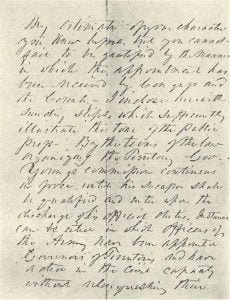 My estimate of your character
you know upon, but you cannot
fail to be gratified by the manner
in which the appointment has
been received by Congress and
the Country. I enclose herewith
sundry slips, which sufficiently
illustrate the tone of the public
press. By the terms of the law
organizing the Territory Gov.
Young's commission continues
in force, until his successor shall
be qualified and enter upon the
discharge of his official duties. Instances
can be cited in which Officers of
the Army have been appointed
Governors of Territories and have
acted in the Civil capacity
without relinquishing their